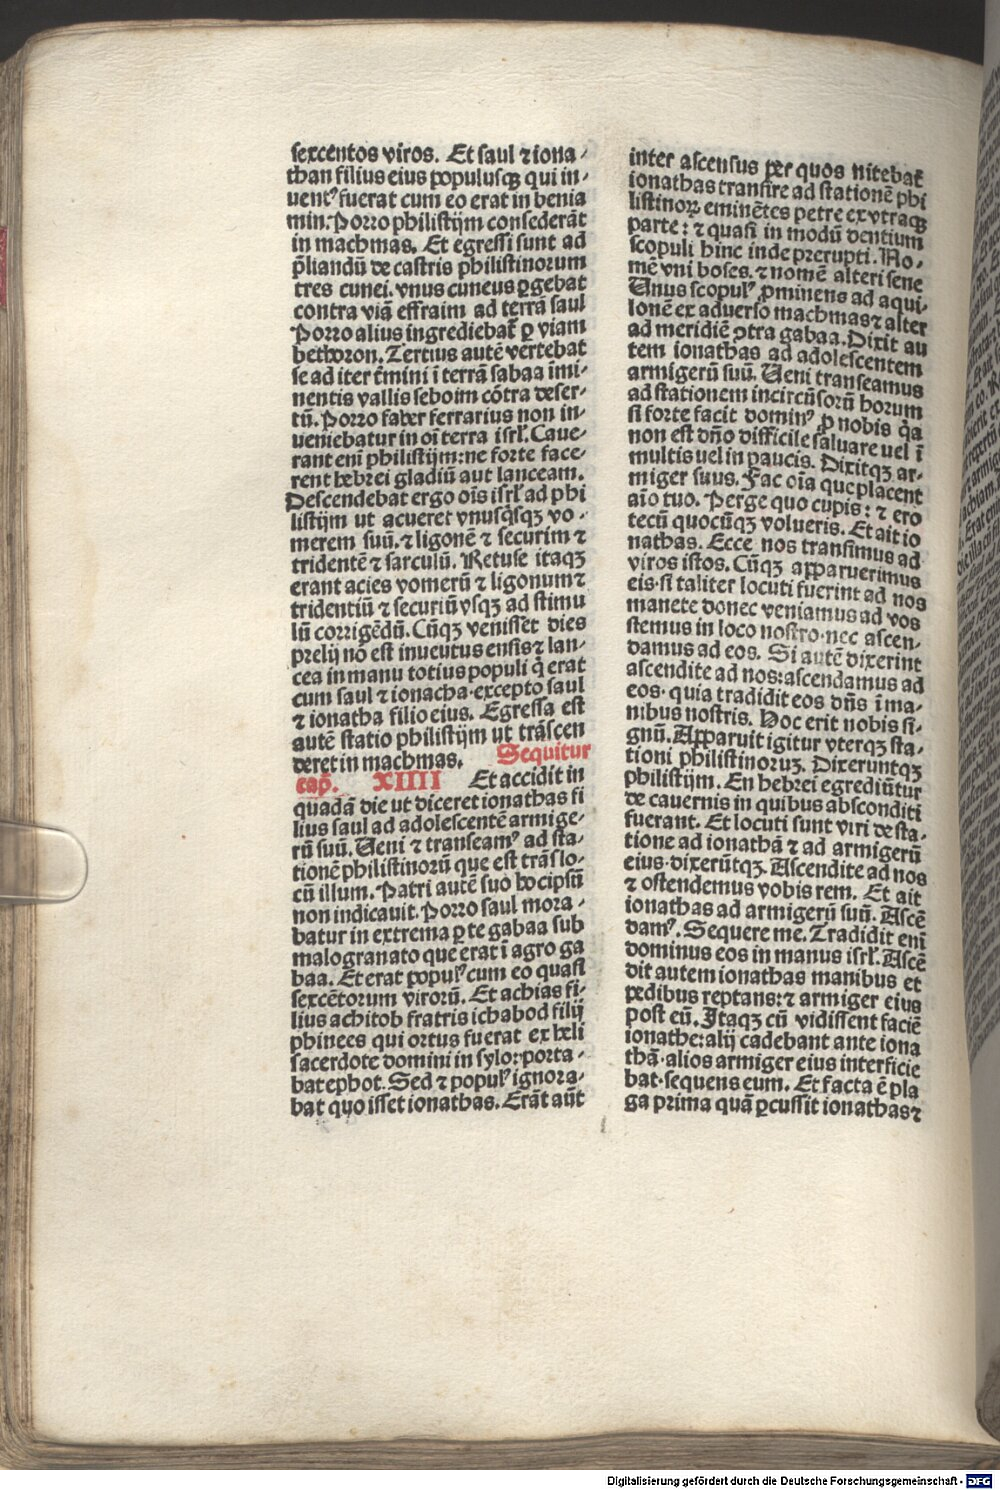 sexcentos viros. Et saul ⁊ iona⸗
than filius eius populusqꝫ qui in⸗
uentꝰ fuerat cum eo erat in benia
min. Porro philistijm consederāt
in machmas. Et egressi sunt ad
p̄liandū de castris philistinorum
tres cunei. vnus cuneus ꝑgebat
contra viā effraim ad terrā saul
Porro alius ingrediebat̄ ꝑ viam
bethoron. Tertius autē vertebat
se ad iter t̄mini ī terrā sabaa īmi⸗
nentis vallis seboim cōtra deser⸗
tū. Porro faber ferrarius non in⸗
ueniebatur in oī terra isrl̄. Caue⸗
rant enī philistijm: ne forte face⸗
rent hebrei gladiū aut lanceam.
Descendebat ergo oīs isrl̄ ad phi
listijm ut acueret vnusq̄sqꝫ vo⸗
merem suū. ⁊ ligonē ⁊ securim ⁊
tridentē ⁊ sarculū. Retuse itaqꝫ
erant acies vomerū ⁊ ligonum ⁊
tridentiū ⁊ securiū vsqꝫ ad stimu
lū corrigēdū. Cūqꝫ venisset dies
prelij nō est inuentus ensis ⁊ lan⸗
cea in manu totius populi q̄ erat
cum saul ⁊ ionacha·excepto saul
⁊ ionatha filio eius. Egressa est
autē statio philistijm ut trāscen
deret in machmas. Sequitur
cap̄. XIIII Et accidit in
quadā die ut diceret ionathas fi
lius saul ad adolescentē armige⸗
rū suū. Veni ⁊ transeamꝰ ad sta⸗
tionē philistinorū que est trāslo⸗
cū illum. Patri autē suo hoc ipsū
non indicauit. Porro saul mora⸗
batur in extrema ꝑte gabaa sub
malogranato que erat ī agro ga
baa. Et erat populꝰ cum eo quasi
sexcētorum virorū. Et achias fi⸗
lius achitob fratris ichabod filij
phinees qui ortus fuerat ex heli
sacerdote domini in sylo: porta⸗
bat ephot. Sed ⁊ populꝰ ignora⸗
bat quo isset ionathas. Erāt aūt
inter ascensus per quos nitebat̄
ionathas transire ad stationē phi
listinoꝝ eminētes petre ex vtraqꝫ
parte: ⁊ quasi in modū dentium
scopuli hinc inde prerupti. No⸗
mē vni boses. ⁊ nomē alteri sene
Vnus scopulꝰ ꝓminens ad aqui⸗
lonē ex aduerso machmas ⁊ alter
ad meridiē ꝯtra gabaa. Dixit au
tem ionathas ad adolescentem
armigerū suū. Veni transeamus
ad stationem incircūsorū horum
si forte facit dominꝰ ꝓ nobis q̄a
non est dn̄o difficile saluare uel ī
multis uel in paucis. Dixitqꝫ ar⸗
miger suus. Fac oīa que placent
aīo tuo. Perge quo cupis: ⁊ ero
tecū quocūqꝫ volueris. Et ait io
nathas. Ecce nos transimus ad
viros istos. Cūqꝫ apparuerimus
eis·si taliter locuti fuerint ad nos
manete donec veniamus ad vos
stemus in loco nostro·nec ascen⸗
damus ad eos. Si autē dixerint
ascendite ad nos: ascendamus ad
eos·quia tradidit eos dn̄s ī ma⸗
nibus nostris. Hoc erit nobis si⸗
gnū. Apparuit igitur vterqꝫ sta⸗
tioni philistinoruꝫ. Dixeruntqꝫ
philistijm. En hebrei egrediūtur
de cauernis in quibus absconditi
fuerant. Et locuti sunt viri de sta⸗
tione ad ionathā ⁊ ad armigerū
eius·dixerūtqꝫ. Ascendite ad nos
⁊ ostendemus vobis rem. Et ait
ionathas ad armigerū suū. Ascē
damꝰ. Sequere me. Tradidit enī
dominus eos in manus isrl̄. Ascē
dit autem ionathas manibus et
pedibus reptans: ⁊ armiger eius
post eū. Itaqꝫ cū vidissent faciē
ionathe: alij cadebant ante iona
thā·alios armiger eius interficie
bat·sequens eum. Et facta ē pla
ga prima quā ꝑcussit ionathas ⁊
Digitalisierung gefördert durch die Deutsche Forschungsgemeinschaft - DFG